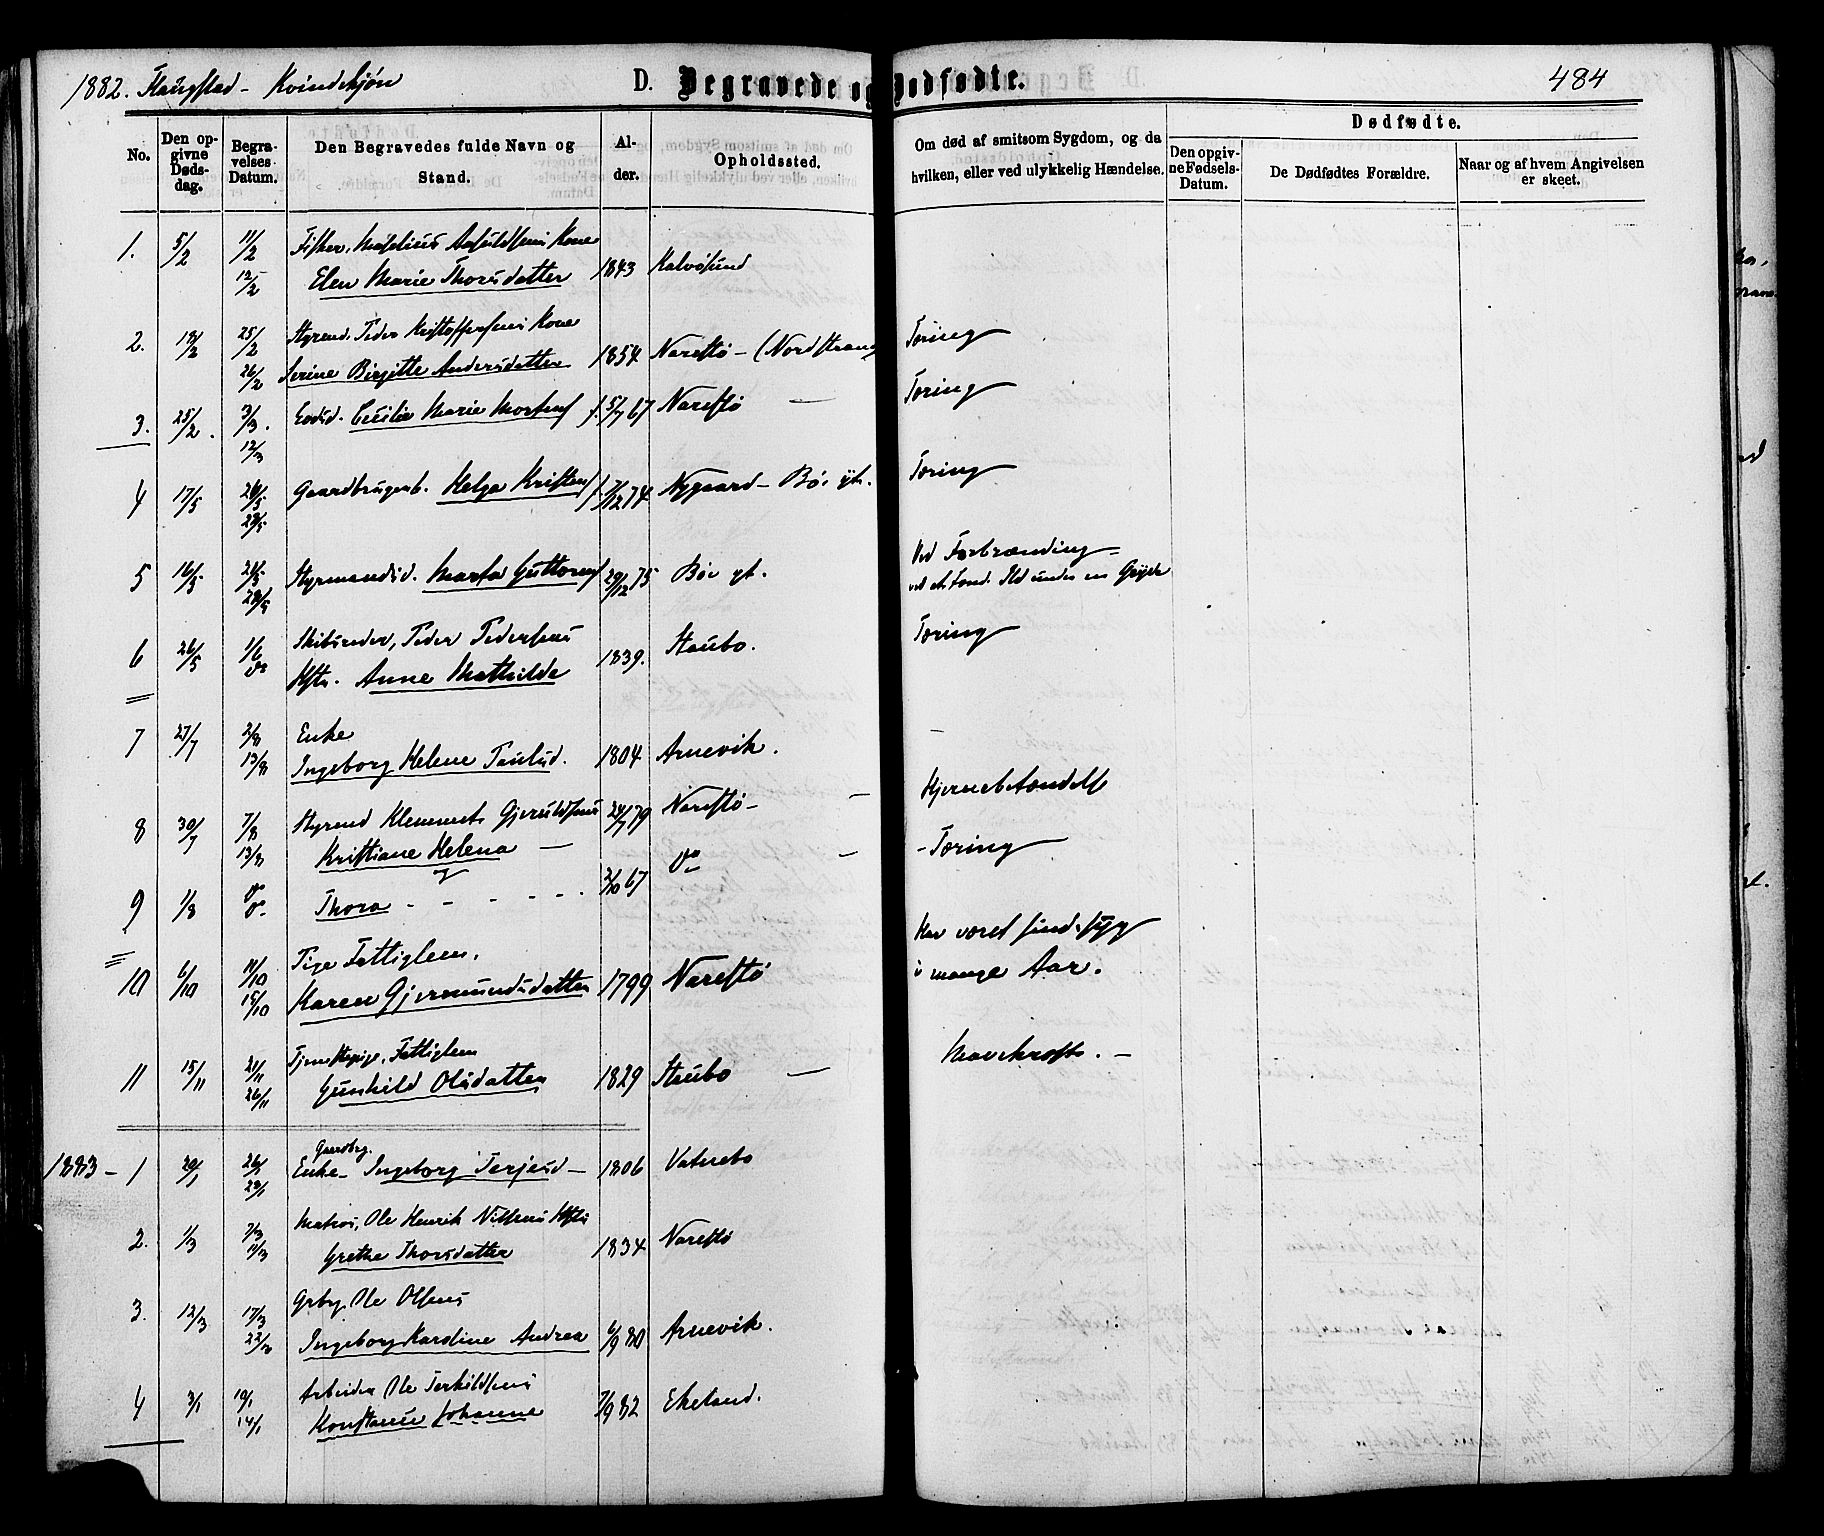 1882. Flangstad - Kvindekjøn
D. Begravede og Dødfødte.
484
No.
Den opgivne Dødsdag.
Begravelses Datum.
Den Begravedes fulde Navn og Stand.
Alder.
Opholdssted.
Om død af smitsom Sygdom, og da hvilken, eller ved ulykkelig Hændelse.
Dødfødte.
Den opgivne Fødsels-Datum.
De Dødfødtes Forældre.
Naar og af hvem Angivelsen er skeet.
1. 5/2 11/2 Fisker, Kone
12/2 Elen Marie Thorsdatter 1843 Kalvøsund
2. 18/2 25/2 Styrmd. Peder Kristoffersens Kone
26/2 Serine Birgitte Andersdatter 1854 Narestø - (Nordstrand Tæring
3. 25/2. 3/3. Cecilie Marie Mortensd f. 5/7 67 Narestø — Tæring
12/3
4 17/5 26/5 Gaardbrugerb. Helga Kristensd f. 12 74 Nygaard - Bøe yt. Tæring
28/5
5 16/5 21/5 Styrmandsd. Marta Guttormsd 29/12 75 Bøe yt. Ved Forbrænding
28/5 ved at Ild under en Gryde
6 26/5 1/6 Skibsreder, Peder Pedersens
do Hstr. Anne Mathilde 1839. Staubo. Tæring
7 27/7 2/8 Enke
13/8 Ingeborg Helene Paulsd. 1804. Arnevik. —
8 30/7 7/8 Styrmd Klemmet Gjeruldsens 24/7 79 Narestø - — Hjernebetændelse
13/8 Kristiane Helena —
9 1/8 do Thora - - - - - 2/10 67 do — - Tæring
do
10 6/10 11/10 Pige Fattiglem. Har været sindssyg
15/10 Karen Gjermundsdatter 1799 Narestø i mange Aar.
11 15/11 21/11 Tjenstepige, Fattiglem
26/11 Gunhild Olsdatter 1829 Staubo — Mavekræft. —
1883 - 1 20/1 26/1 Gaardbrg.
28/1 Enke - Ingeborg Terjesd - 1806 Vatnebo
2. 1/3 7/3 Matros, Ole Henrik Nilsens Hstr
11/3 Grethe Thorsdatter 1834 Narestø
3. 12/3 17/3 Grbr. Ole Olsens
22/3 Ingeborg Karoline Andrea 6/9 80 Arnevik.
4 3/1 10/1 Arbeider Ole Terkildsens
14/1 Konstanse Johanne 7/9 82 Ekeland.